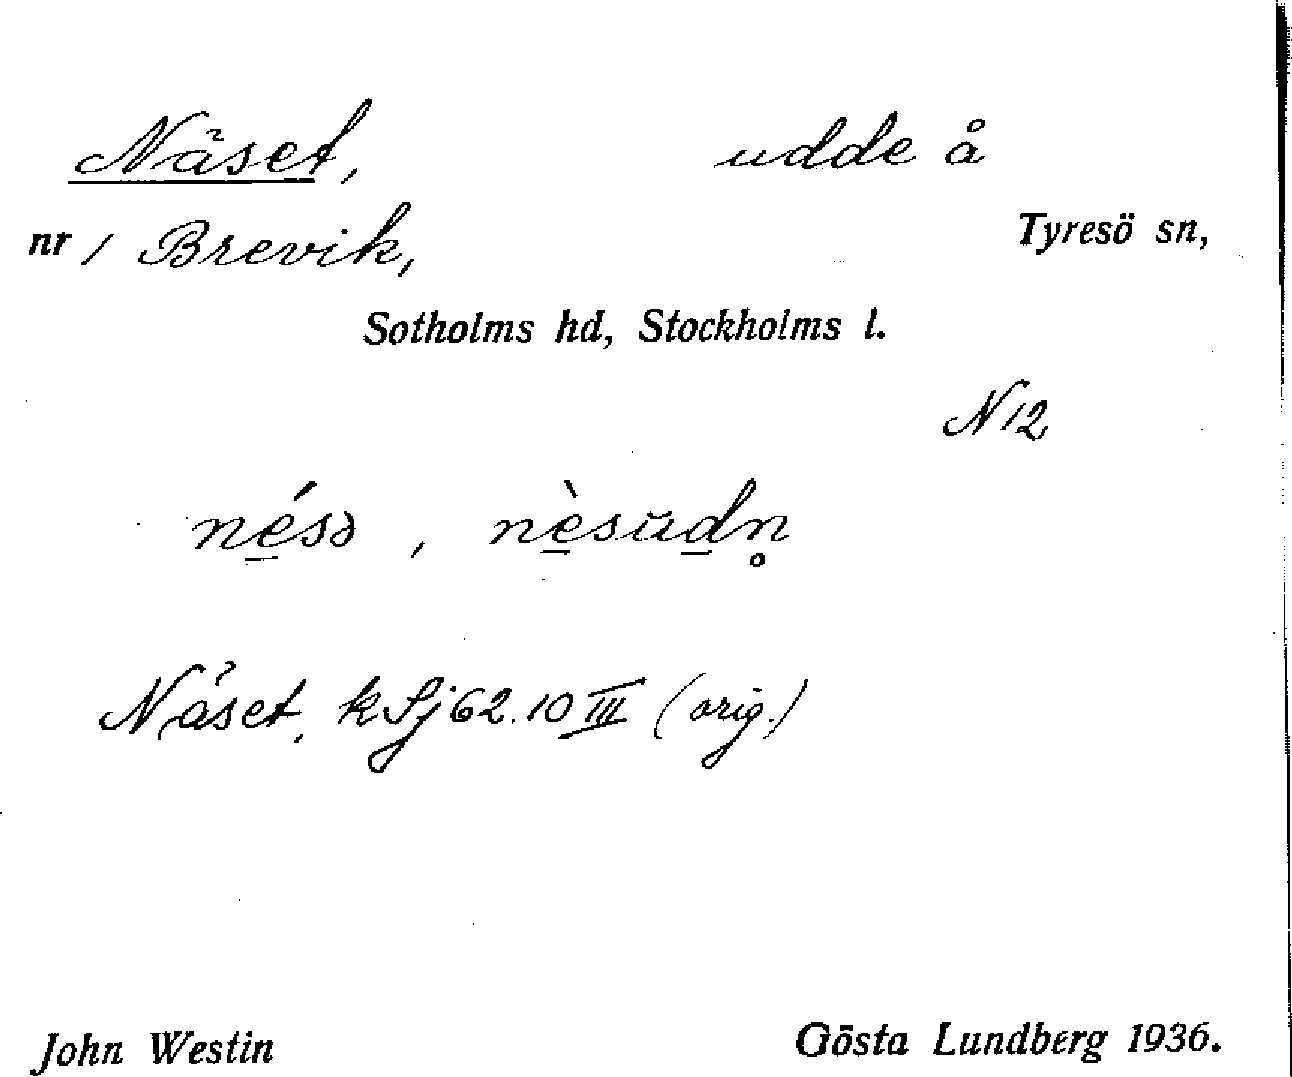 Näset, udde å
nr 1 Brevik, Tyresö sn,
Sotholms hd, Stockholms l.
N 12
né̱sə, nè̱sŭḏn̥
Näset, k Sj 62.10 III (orig.)
John Westin Gösta Lundberg 1936.